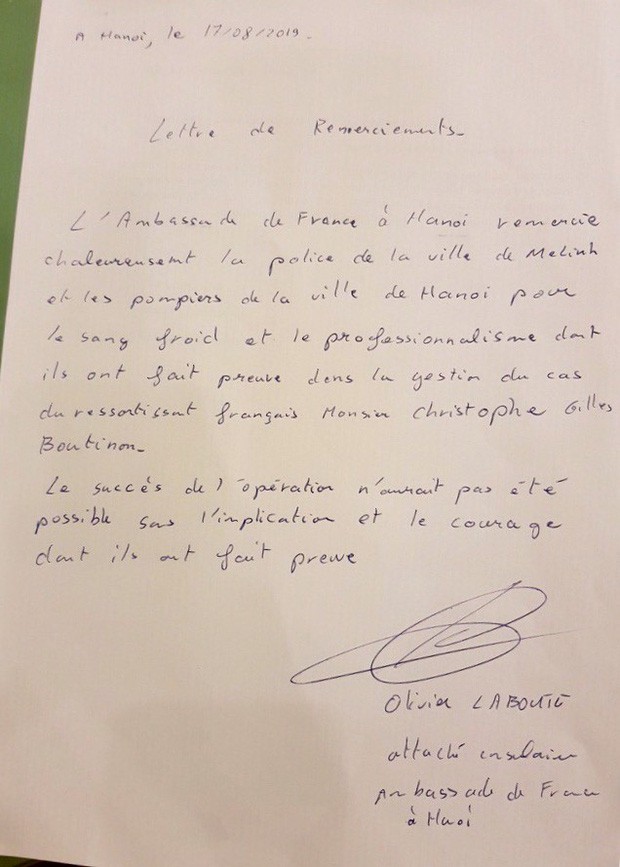 A Hanoi, le 17/08/2019.
Lettre de Remerciements.
L'Ambassade de France à Hanoi remercie
chaleureusemt la police de la ville de Melinh
et les pompiers de la ville de Hanoi pour
le sang froid et le professionnalisme dont
ils ont fait preuve dans la gestion du cas
du ressortissant français Monsieur Christophe Gilles
Boutinon.
Le succés de l'opération n'aurait pas été
possible sans l'implication et le courage
dont ils ont fait preuve
Olivier
attaché consulaire
Ambassade de France
à Hanoi